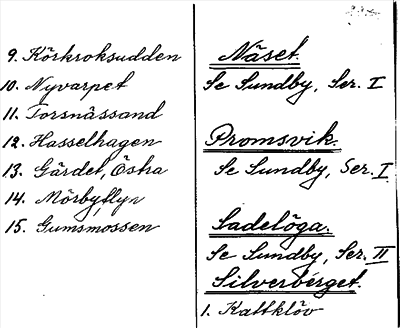 9. Körkroksudden
10. Nyvarpet
11. Torsnässand
12. Hasselhagen
13. Gärdet, Östra
14. Mörbyflyn
15. Gumsmossen
Näset.
Se Sundby, Ser. I
Promsvik.
Se Sundby, Ser. I
Sadelöga.
Se Sundby, Ser. II
Silverberget.
1. Kattklöv